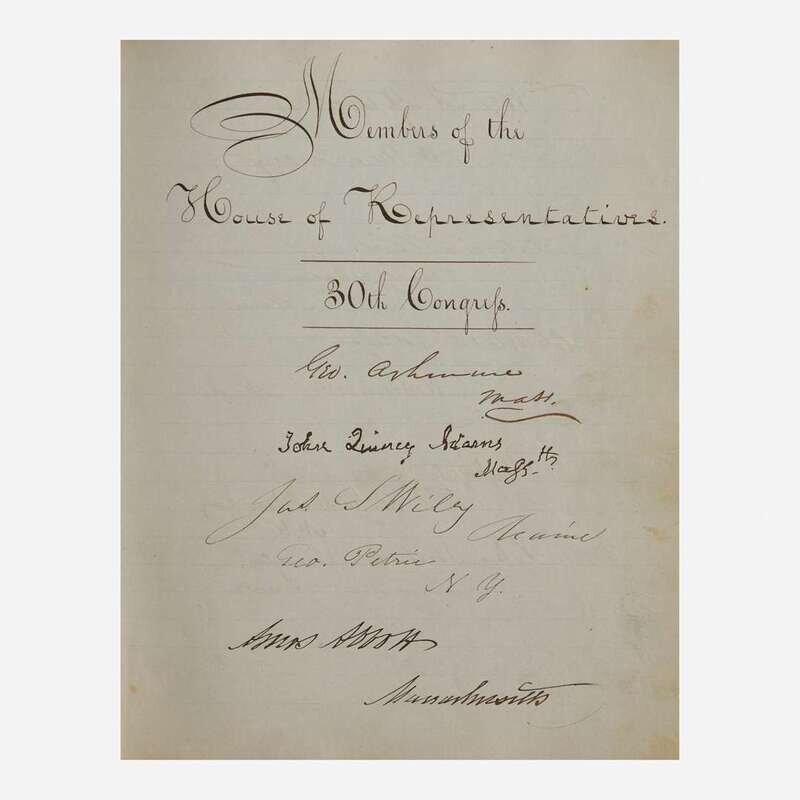 Members of the
House of Representatives.
30th Congreſs.
Geo. Ashmun
Mass.
John Quincy Adams
Maſs.tts
Jas. S Wiley
Maine
Geo. Petrie
N. Y.
Amos Abbott
Massachusetts